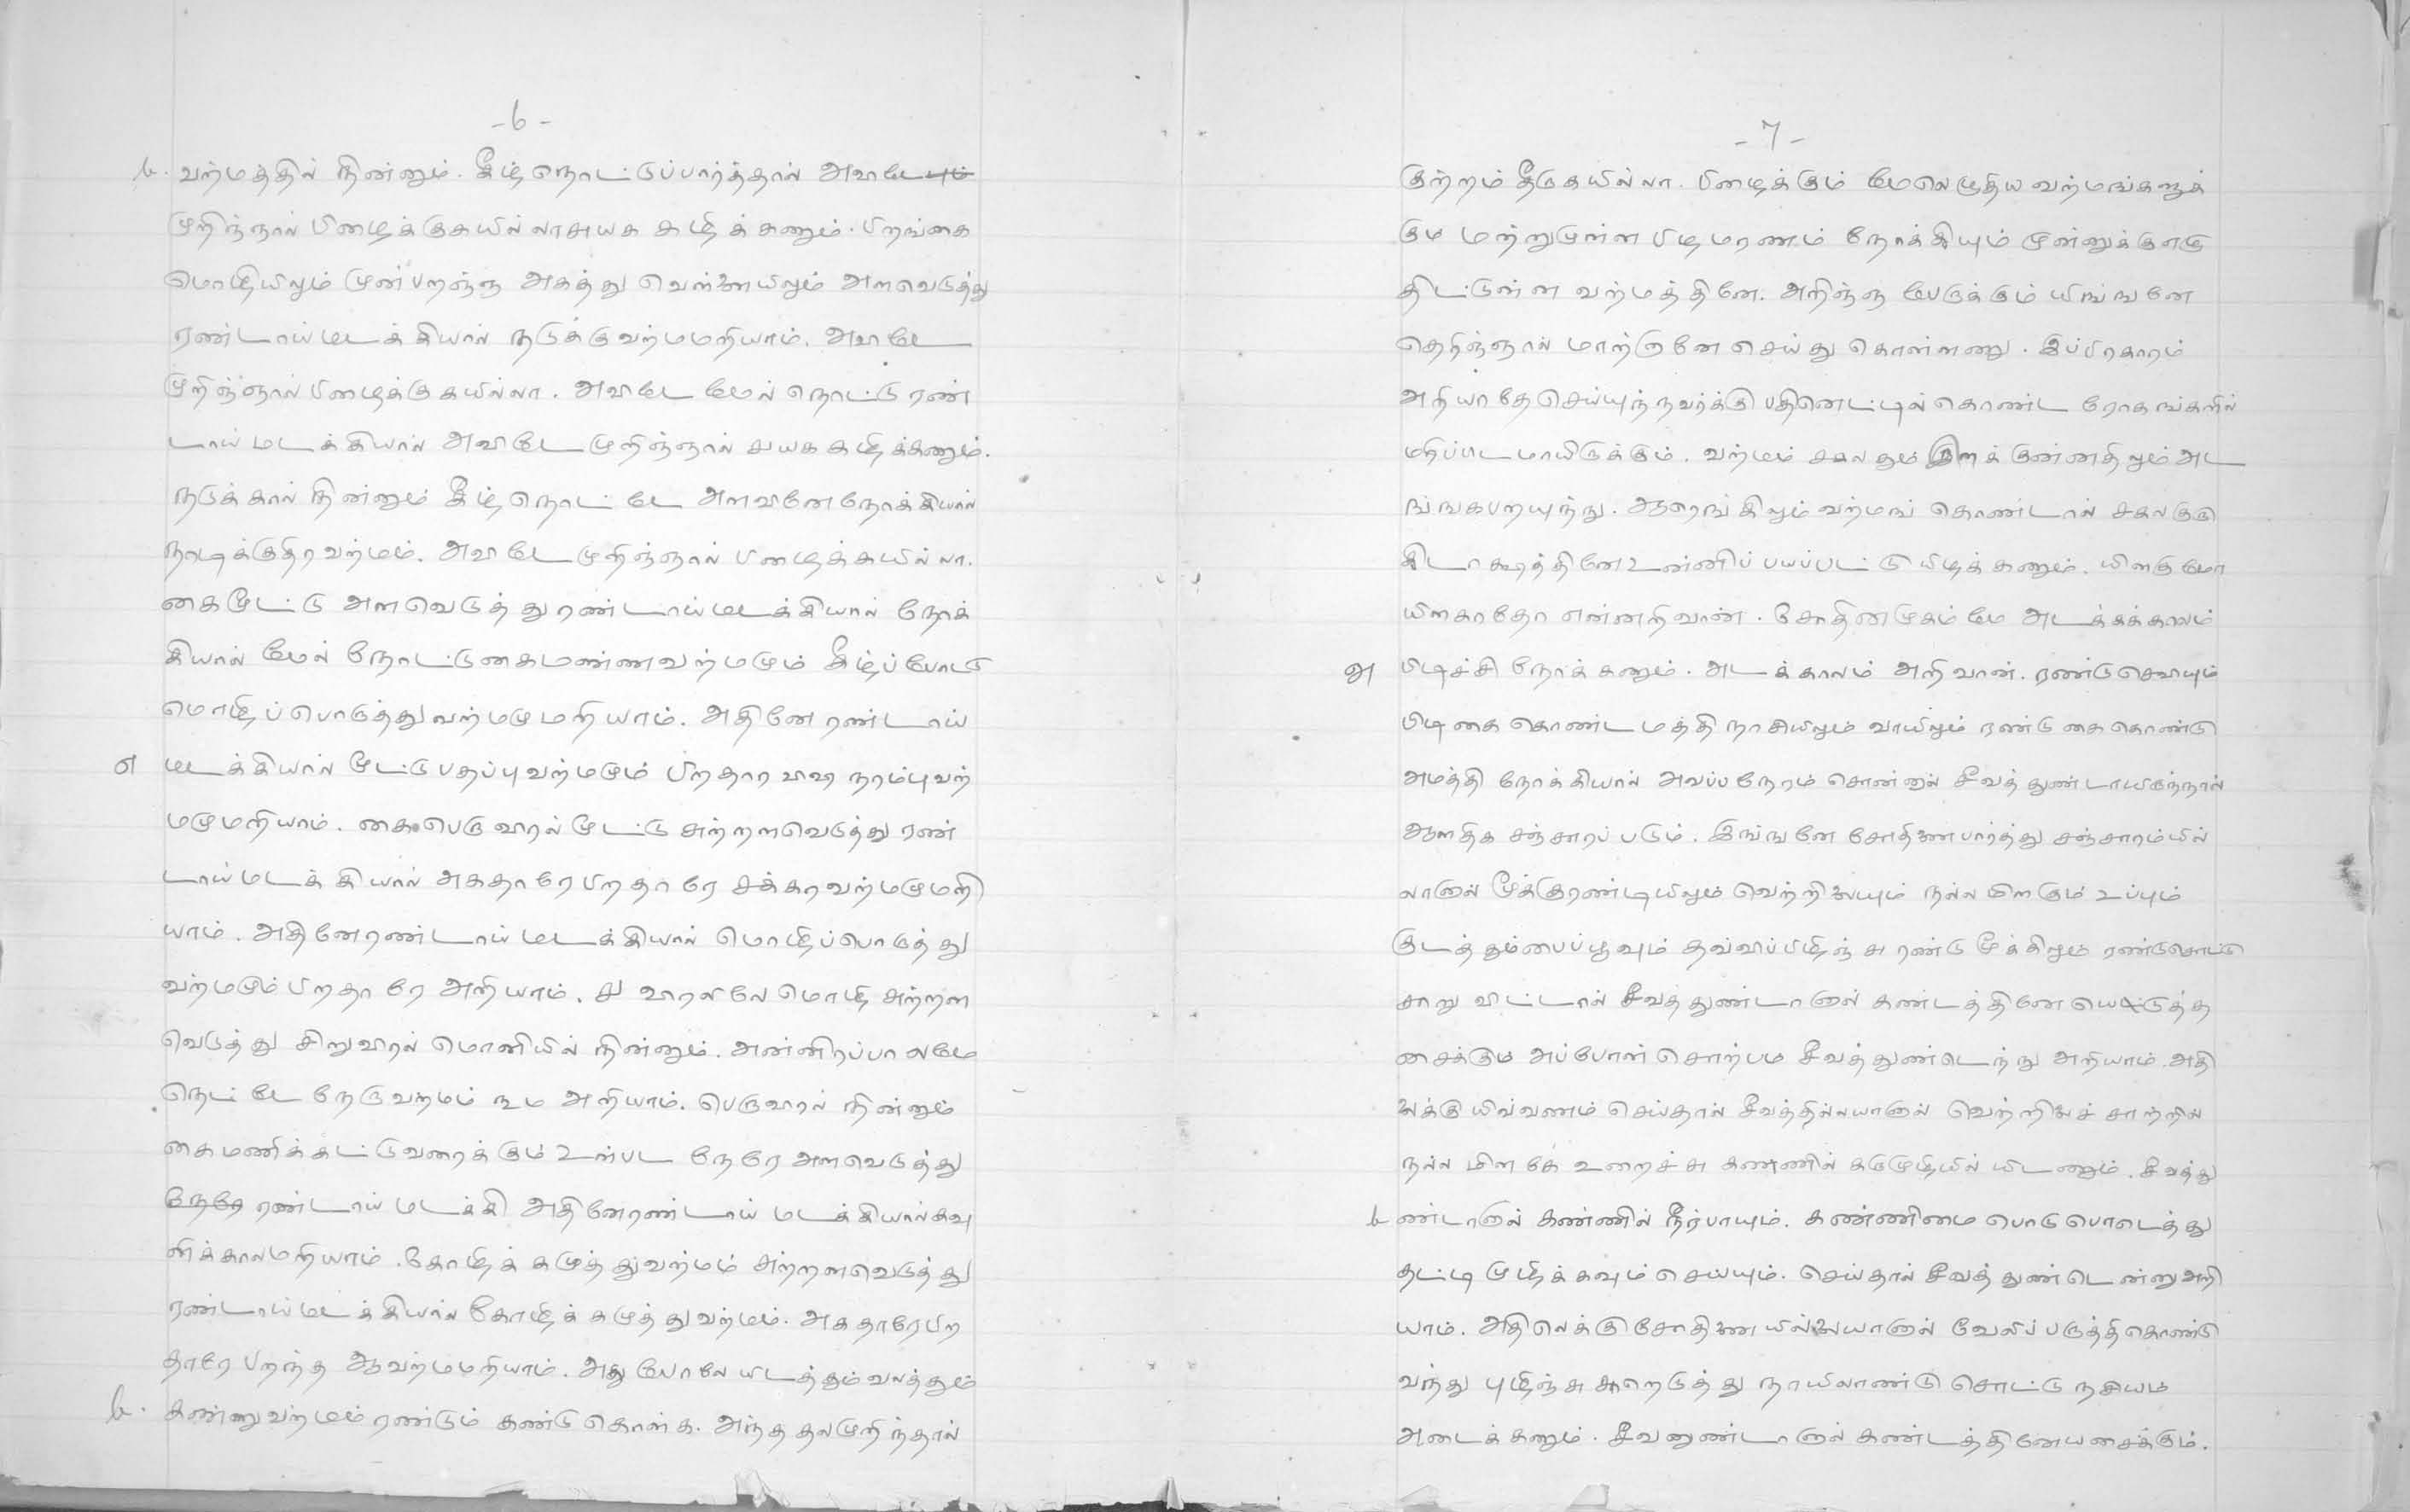 -6-
b. வற்மத்தில் நின்னும். கீழ் நொட்டுப்பார்த்தால் அவிடேயும்
முறிஞ்ஞால் பிழைக்குகயில்லாசுயக கழிக்கணும். பிறங்கை
மொழியிலும் முன்பறஞ்ஞ அகத்து வெள்ளையிலும் அளவெடுத்து
ரண்டாய்மடக்கியால் நடுக்குவற்மமறியாம். அவிடே
முறிஞ்ஞால் பிழைக்குகயில்லா. அவிடே மேல் நொட்டு ரண்
டாய் மடக்கியால் அவிடே முறிஞ்ஞால் சுயக கழிக்கணும்.
நடுக்கால் நின்னும் கீழ் நொட்டே அளவினே நோக்கியால்
நாடிக்குதிர வற்மம். அவிடே முறிஞ்ஞால் பிழைக்கயில்லா.
கைமூட்டு அளவெடுத்து ரண்டாய்மடக்கியால் நோக்
கியால் மேல் நோட்டுகைமண்ணவற்மமும் கீழ்ப்போட்டு
மொழிப் பொருத்துவற்மமுமறியாம். அதினே ரண்டாய்
a மடக்கியால் மூட்டுபதப்புவற்மமும் பிறதார விஷ நரம்புவற்
மமுமறியாம். கைபெருவிரல் மூட்டு சுற்றளவெடுத்து ரண்
டாய்மடக்கியால் அகதாரேபிறதாரே சக்கரவற்மமுமறி
யாம். அதினேரண்டாய் மடக்கியால் மொழிப்பொருத்து
வற்மமும் பிறதாரே அறியாம். சு விரலிலே மொழி சுற்றள
வெடுத்து சிறுவிரல் மொளியில் நின்னும். அண்ணிரப்பாலமே
நெட்டே நேருவற்மம் நம அறியாம். பெருவிரல் நின்னும்
கைமணிக்கட்டுவரைக்கும் உள்பட நேரே அளவெடுத்து
நேரே ரண்டாய் மடக்கி அதினேரண்டாய் மடக்கியால்கவு
ளிக்காலமறியாம். கோழிக் கழுத்துவற்மம் சுற்றளவெடுத்து
ரண்டாய்மடக்கியால் கோழிக் கழுத்துவற்மம். அகதாரேபிற
தாரே பறந்த ஆவற்மமறியாம். அது போலே யிடத்தும் வலத்தும்
b. கண்ணுவற்மம் ரண்டும் கண்டு கொள்க. அந்த தலமுறிந்தால்
-7-
குற்றம் தீருகயில்லா. பிழைக்கும் மேலெழுதிய வற்மங்களுக்
கும் மற்றுமுள்ள பிடிமரணம் நோக்கியும் முன்னுக்குளரு
திட்டுள்ள வற்மத்தினே. அறிஞ்ஞ பேருக்கும் யிங்ஙனே
தெரிஞ்ஞால் மாற்றானே செய்து கொள்ளணு. இப்பிரகாரம்
அறியாதே செய்யுந்நவர்க்கு பதினெட்டில் கொண்ட ரோகங்களில்
மரிப்பிடமாயிருக்கும். வற்மம் சகலதும் இளக்குன்னதிலும் அட
ங்ஙகபறயுந்நு. ஆரெங்கிலும் வற்மங் கொண்டால் சகலகுரு
கிடாக்ஷத்தினே உன்னிப் பயப்பட்டு யிழக்கணும். யிளகுமோ
யிளகாதோ என்னறிவான். சோதினமுகம் மே அடக்கக்காலம்
அ பிடிச்சி நோக்கணும். அடக்காலம் அறிவான். ரண்டு செவியும்
பிடி கை கொண்ட மத்தி நாசியிலும் வாயிலும் ரண்டு கை கொண்டு
அமத்தி நோக்கியால் அவப்ப நேரம் சொன்னால் சீவத் துண்டாயிருந்நால்
ஆளதிக சஞ்சாரப்படும். இங்ஙனே சோதினைபார்த்து சஞ்சாரம்யில்
லானால் மூக்குரண்டியிலும் வெற்றிலையும் நல்லமிளகும் உப்பும்
குடத் தும்பைப்பூவும் தவ்விப்பிழிஞ்சு ரண்டு மூக்கிலும் ரண்டுசொட்டு
சாறு விட்டால் சீவத்துண்டானால் கண்டத்தினே யெடுத்த
சைக்கும் அப்போள் சொற்பம் சீவத்துண்டெந்நு அறியாம். அதி
லைக்கு யிவ்வணம் செய்தால் சீவத்தில்லயானால் வெற்றிலைச் சாற்றில
நல்ல மிளகே உறைச்சு கண்ணில் கருமுழியில் யிடணும். சீவத்து
b ண்டானால் கண்ணில் நீர்பாயும். கண்ணிமை பொடுபொடெத்து
தட்டி முழிக்கவும் செய்யும். செய்தால் சீவத் துண்டென்னு அறி
யாம். அதிலெக்கு சோதினையில்லையானால் வேலிப் பருத்திகொண்டு
வந்து புழிஞ்சு சாறெடுத்து நாயிலாண்டு சொட்டு நசியம்
அடைக்கணும். சீவனுண்டானால் கண்டத்தினேயசைக்கும்.